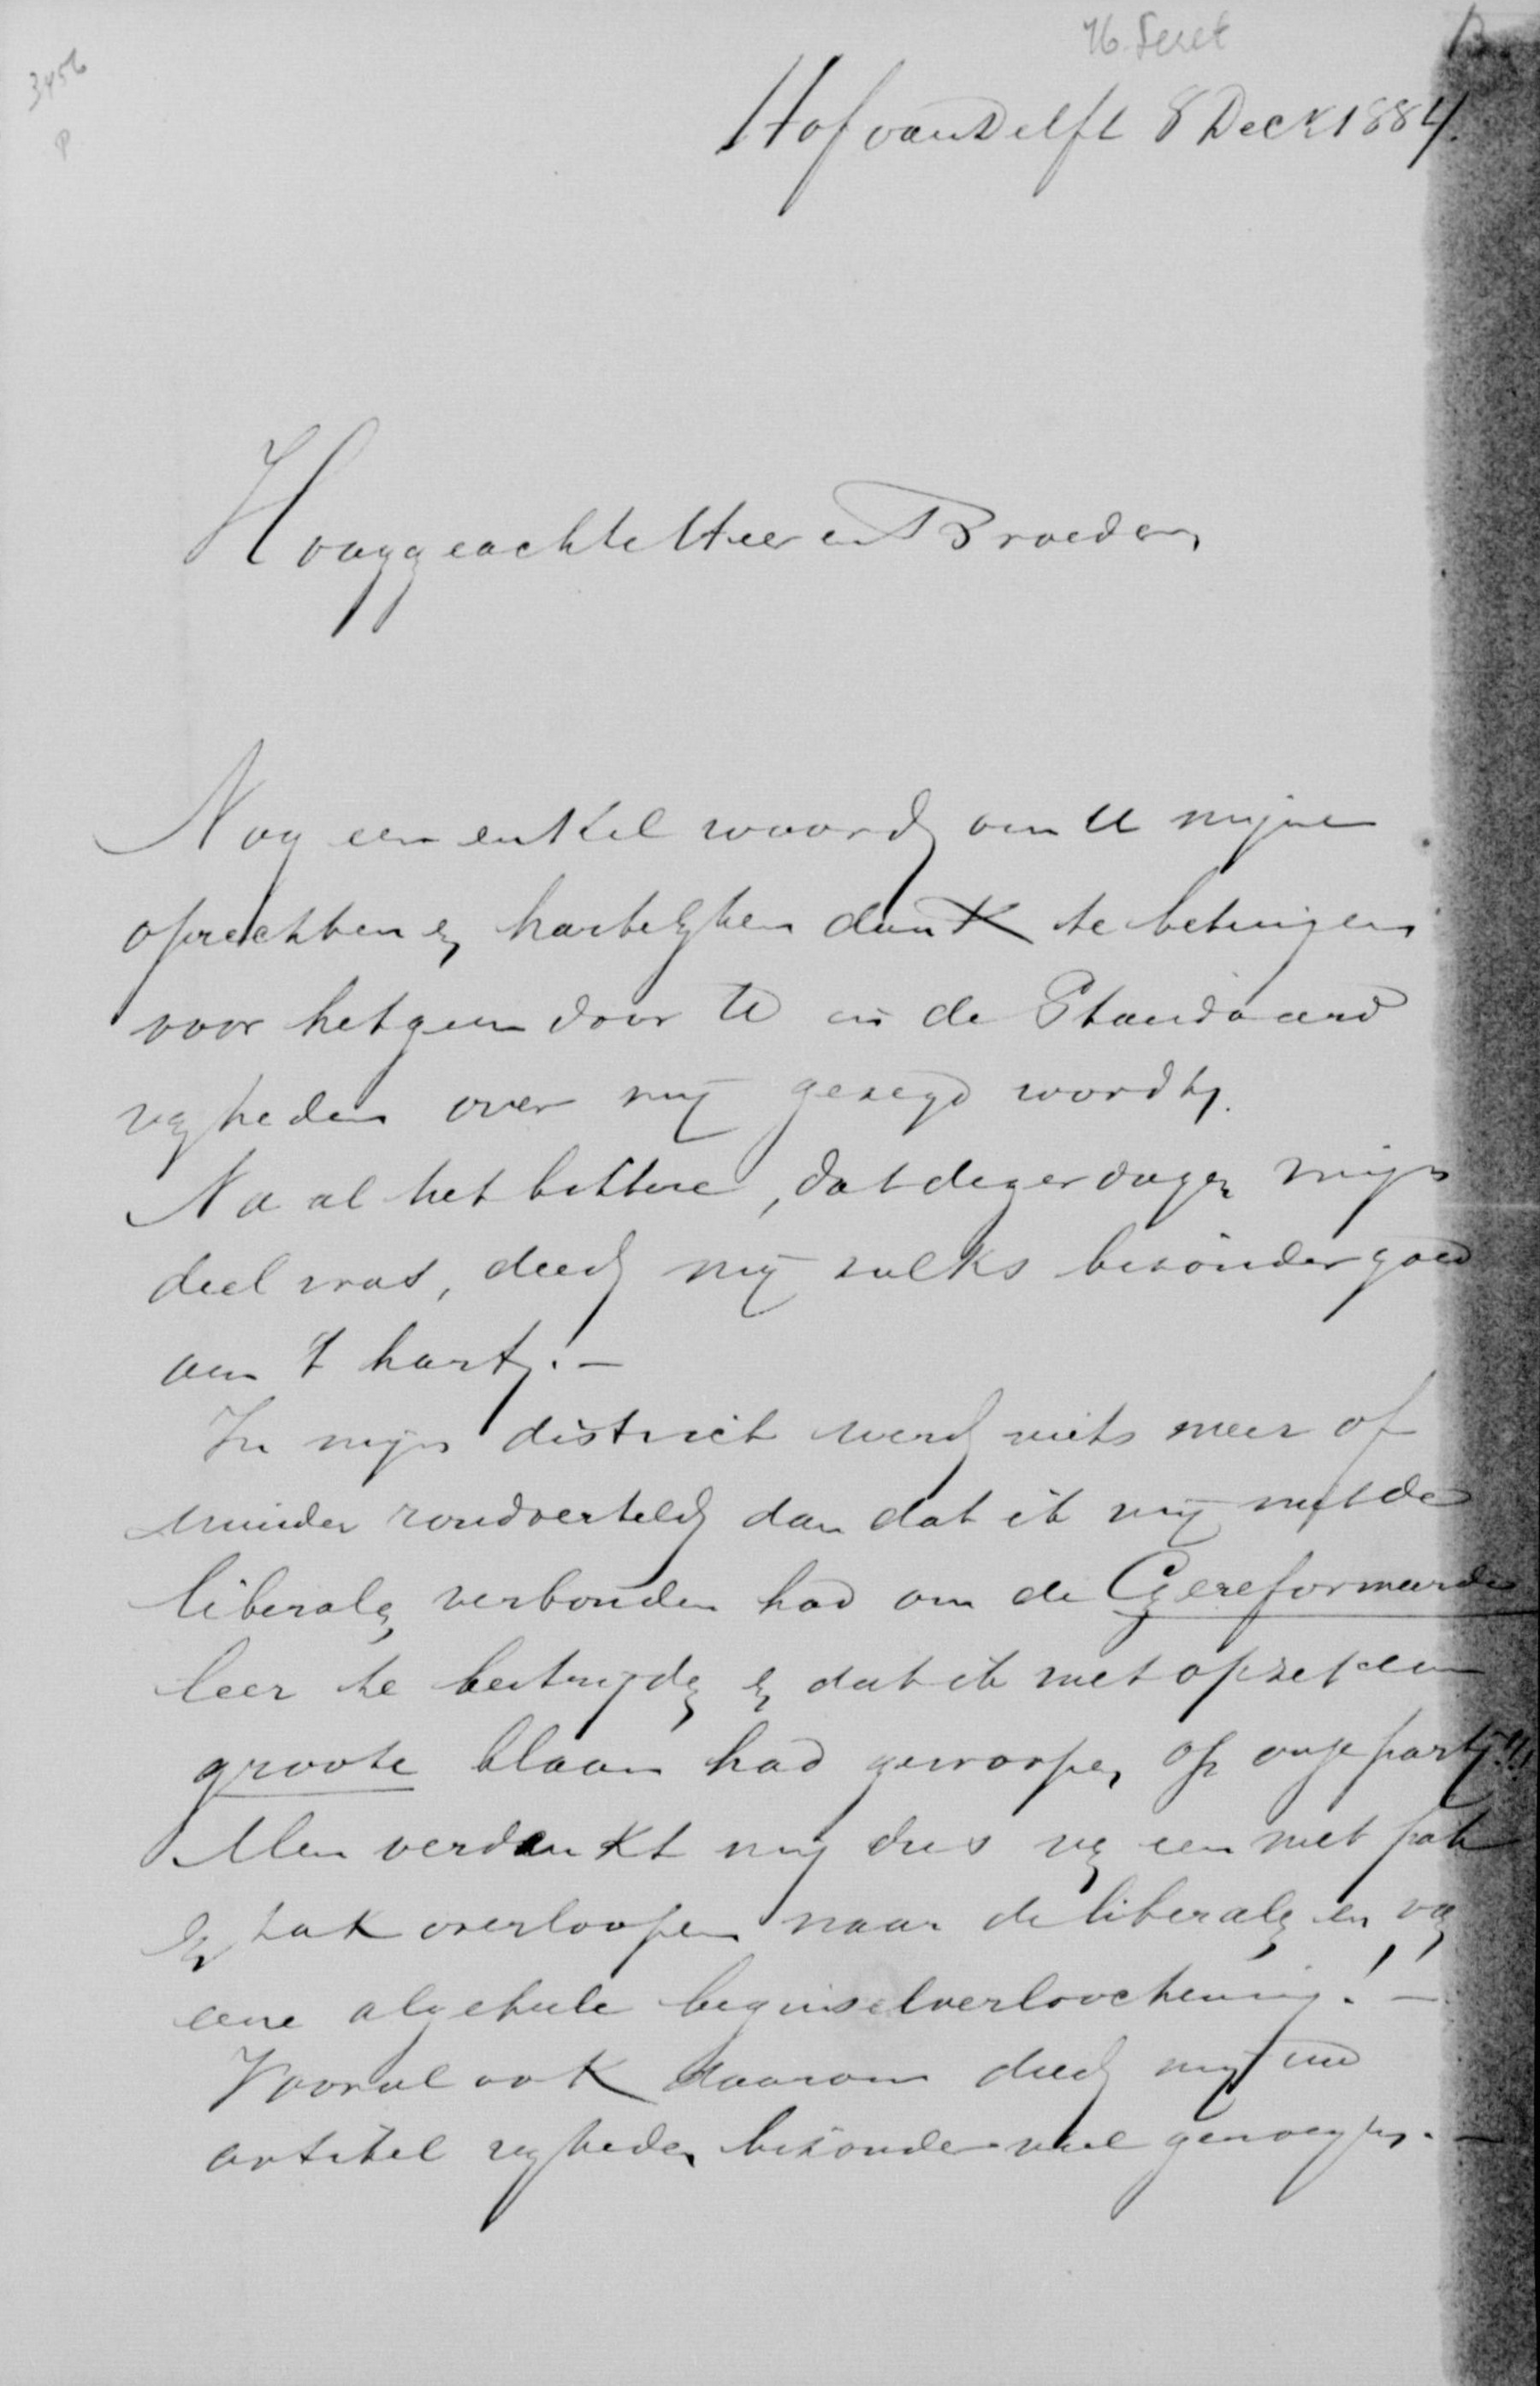 3456
P
Hof van Delft 8 Dec r 1884.
Hooggeachte Heer en Broeder,
Nog een enkel woord om U mijne
oprechten en hartelyken dank te betuigen
voor hetgeen door U in de Standaard
van heden over mij gezegd wordt.
Na al het bittere, dat dezer dagen mijn
deel was, deed mij zulks bizonder goed
aan 't hart. —
In mijn district werd niets meer of
minder rondverteld dan dat ik mij met de
liberalen verbonden had om de Gereformeerde
leer te bestrijden en dat ik met opzet een
groote blaam had geworpen op onze partij!!!
Men verdenkt mij dus van een met pak
en zak overloopen naar de liberalen en van
eene algeheele beginselverloochening! —
Vooral ook daarom deed mij uw
artikel van heden bizonder veel genoegen. —